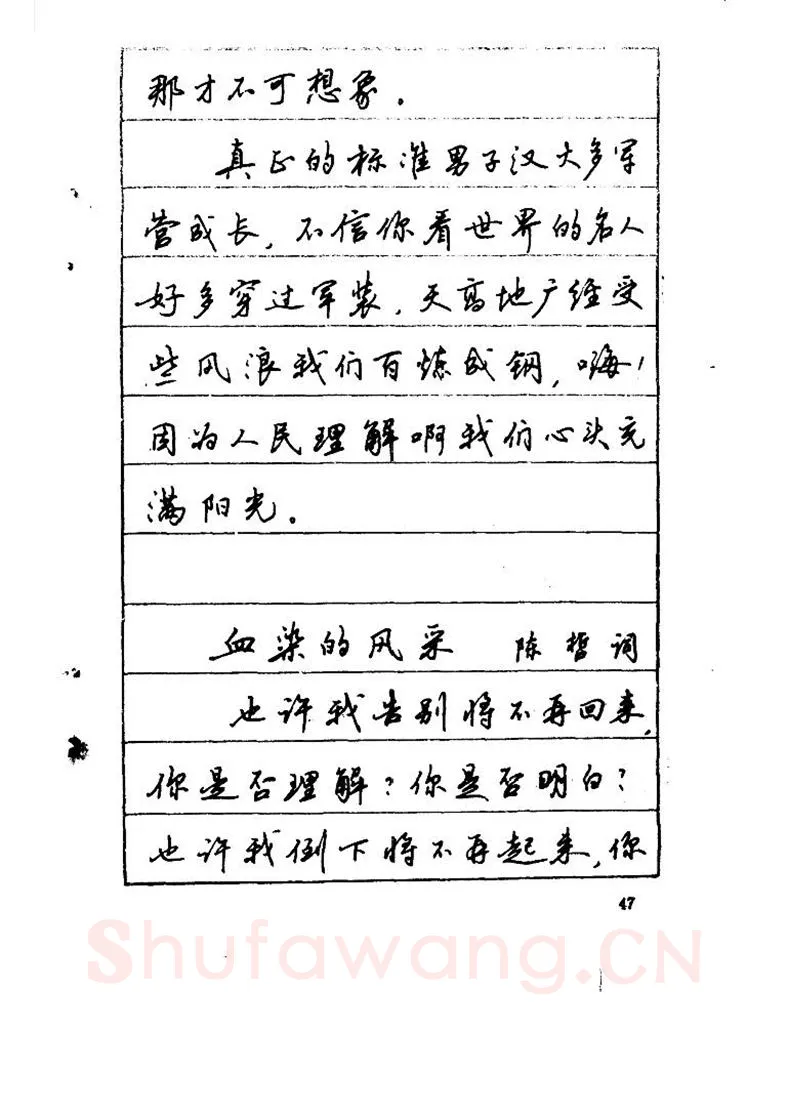 那才不可想象.
真正的标准男子汉大多军
营成长,不信你看世界的名人
好多穿过军装,天高地广经受
些风浪我们百炼成钢,嗨!
因为人民理解啊我们心头充
满阳光。
血染的风采 陈哲词
也许我告别将不再回来,
你是否理解?你是否明白?
也许我倒下将不再起来,你
47
Shufawang.CN